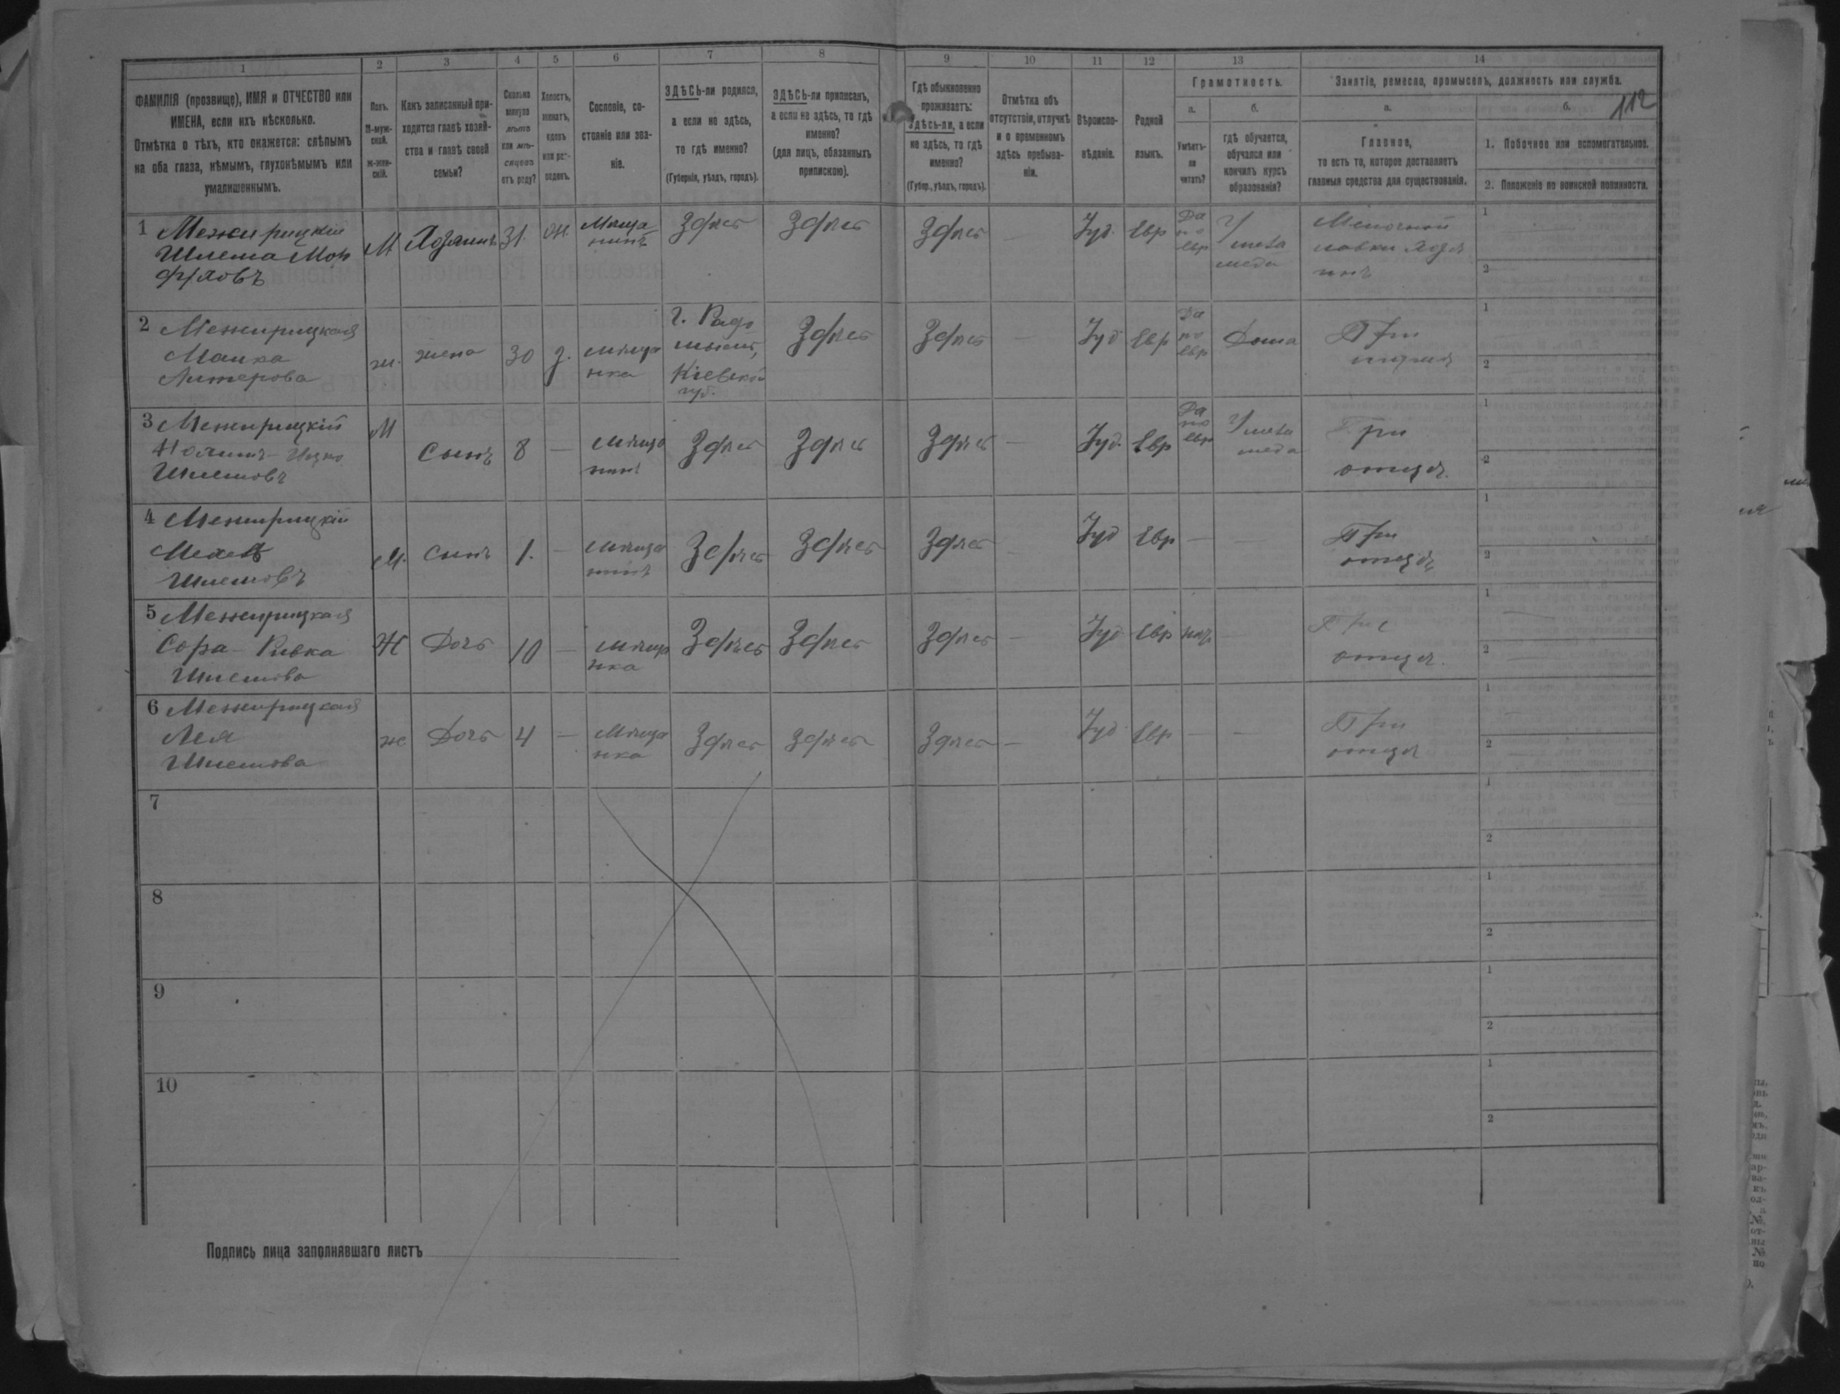 112
1 2 3 4 5 6 7 8 9 10 11 12 13 14
ФАМИЛІЯ (прозвище), ИМЯ и ОТЧЕСТВО или
ИМЕНА, если ихъ нѣсколько.
Отмѣтка о тѣхъ, кто окажется: слѣпымъ
на оба глаза, нѣмымъ, глухонѣмымъ или
умалишеннымъ.
Полъ.
М-муж-
ской.
Ж-жен-
скій.
Какъ записанный при-
ходится главѣ хозяй-
ства и главѣ своей
семьи?
Сколько
минуло
лѣтъ
или мѣ-
сяцевъ
отъ роду?
Холостъ,
женатъ,
вдовъ
или раз-
веденъ.
Сословіе, со-
стояніе или зва-
ніе.
ЗДѢСЬ-ли родился,
а если не здѣсь,
то гдѣ именно?
(Губернія, уѣздъ, городъ).
ЗДѢСЬ-ли приписанъ,
а если не здѣсь, то гдѣ
именно?
(для лицъ, обязанныхъ
припискою).
Гдѣ обыкновенно
проживаетъ:
здѣсь-ли, а если
не здѣсь, то гдѣ
именно?
(Губер., уѣздъ, городъ).
Отмѣтка объ
отсутствіи, отлучкѣ
и о временномъ
здѣсь пребыва-
ніи.
Вѣроиспо-
вѣданіе.
Родной
языкъ.
Грамотность.
а.
Умѣетъ-
ли
читать?
б.
гдѣ обучается,
обучался или
кончилъ курсъ
образованія?
Занятіе, ремесло, промыселъ, должность или служба.
а.
Главное,
то есть то, которое доставляетъ
главныя средства для существованія.
б.
1. Побочное или вспомогательное.
2. Положеніе по воинской повинности.
1 Межирицкій
Шлема
М Хозяинъ 31 Мѣща
нинъ Здѣсь Здѣсь Здѣсь — Іуд. Евр Да
по
евр У
мела
меда Мелочной
лавки хозя
инъ 1
2
2 Межирицкая
Малка
ж. жена 30 з. мѣща
нка г. Радо
мысль,
Кіевской
губ. Здѣсь Здѣсь — Іуд Евр Да
по
Евр Дома При
мужѣ 1
2
3 Межирицкій
Шлемовъ
М Сынъ 8 — мѣща
нинъ Здѣсь Здѣсь Здѣсь — Іуд. Евр Да
по
Евр У мела
меда При
отцѣ. 1
2
4 Межирицкій
Шлемовъ
М. Сынъ 1. — мѣща
нинъ Здѣсь Здѣсь Здѣсь — Іуд Евр — — При
отцѣ 1
2
5 Межирицкая
Сора-Ривка
Шлемова
Ж Дочь 10 — мѣща
нка Здѣсь Здѣсь Здѣсь — Іуд Евр — При
отцѣ. 1
2
6 Межирицкая
Лея
Шлемова
ж Дочь 4 — Мѣща
нка Здѣсь Здѣсь Здѣсь — Іуд Евр — — При
отцѣ 1
2
7 1
2
8 1
2
9 1
2
10 1
2
Подпись лица заполнявшаго листъ